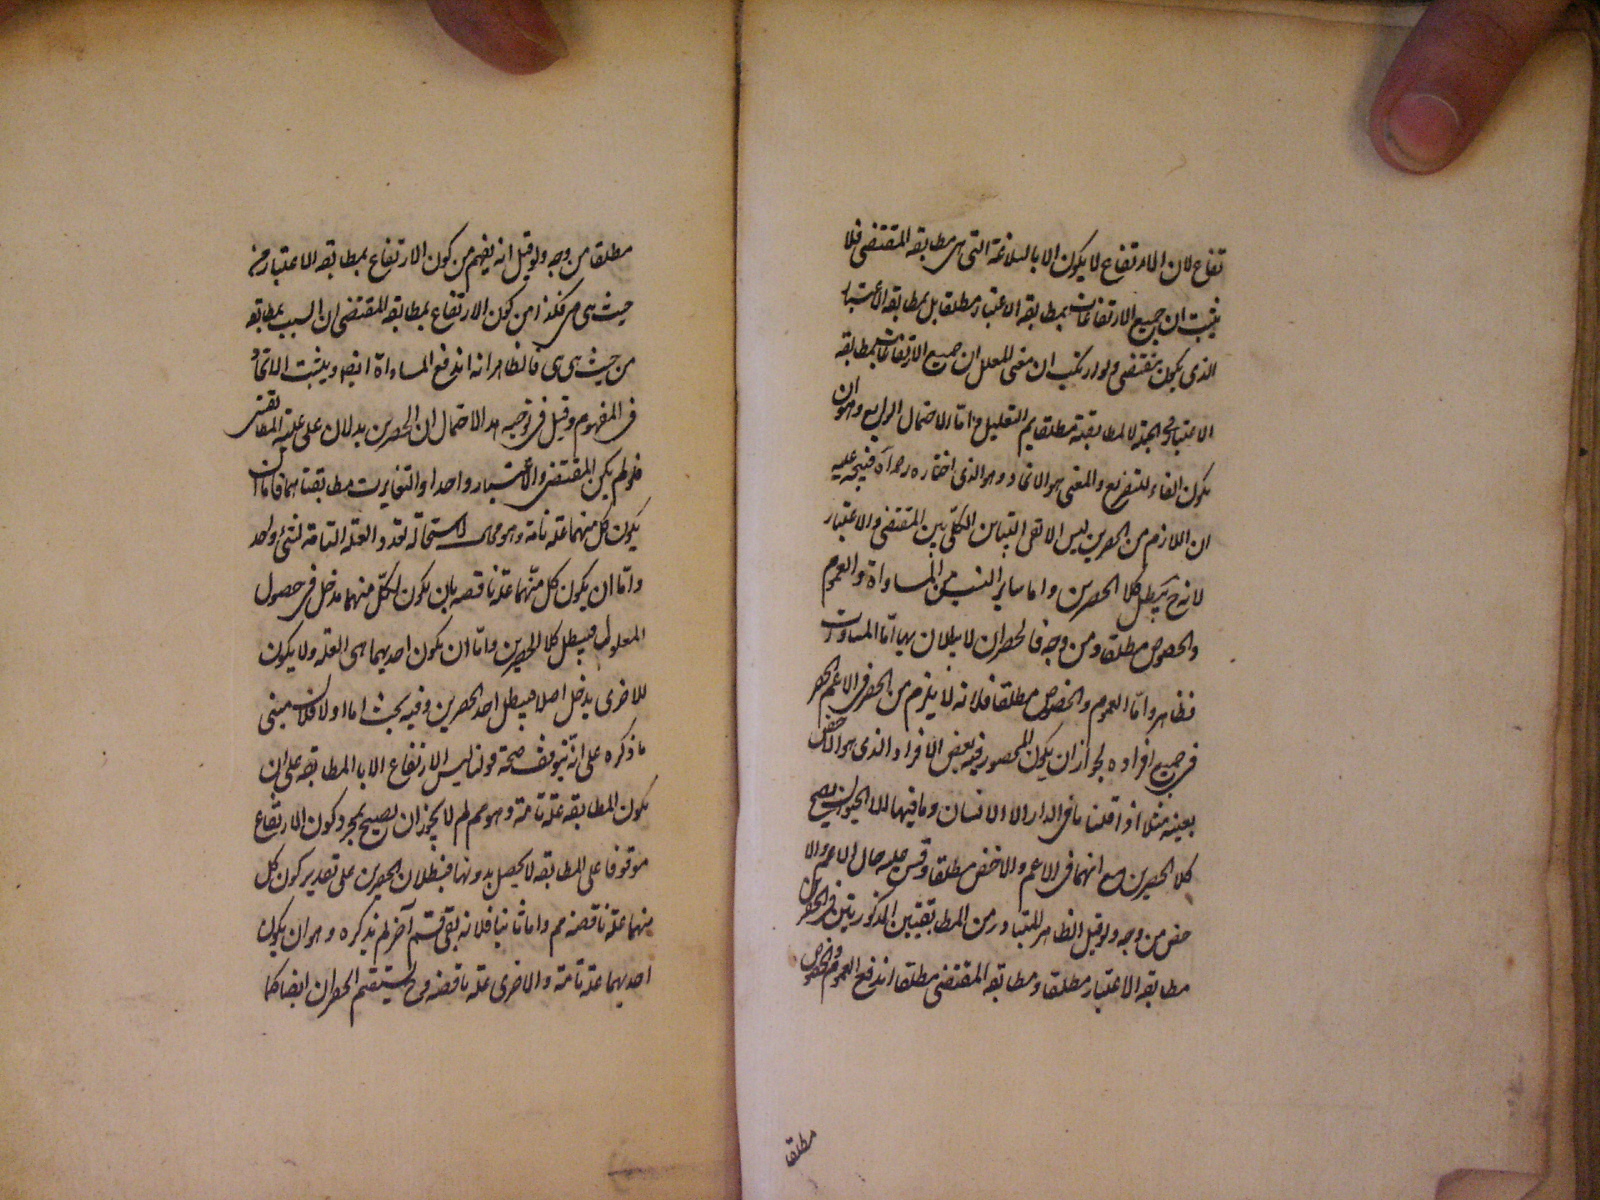 تفاع لان الارتفاع لا يكون الا بالبلاغة التى هى مطابقة المقتضى فلا
يثبت ان جميع الارتفاعات بمطابقة الاعتبار مطلقا بل بمطابقة الاعتبار
الذى يكون مقتضى ولو ارتكب ان معنى المعلل ان جميع الارتفاعات بمطابقة
الاعتبار فى الجملة لا المطابقة مطلقا يتم التعليل واما الاحتمال الرابع وهو ان
يكون الفاء للتفريع والمعنى هو الاتحاد وهو الذى اختاره رحمه الله فيتجه عليه
ان اللازم من الحصرين ليس الا نفى التباين الكلى بين المقتضى والاعتبار
لانه ح يبطل كلا الحصرين واما ساير النسب من المساواة والعموم
والخصوص مطلقا ومن وجه فالحصران لا يبطلان بها اما المساواة
فظاهر واما العموم والخصوص مطلقا فلانه لا يلزم من الحصر فى الاعم الحصر
فى جميع افراده لجواز ان يكون المحصور فيه بعض الافراد الذى هو الاخص
بعينه مثلا اذا قلنا ما فى الدار الا الانسان وما فيها الا الحيوان يصح
كلا الحصرين مع انهما فى الاعم والاخص مطلقا وقس عليه حال الاعم الا
خص من وجه ولو قيل الظاهر المتبادر من المطابقتين المذكورتين فى الحصرين
مطابقة الاعتبار مطلقا ومطابقة المقتضى مطلقا اندفع العموم والخصوص
مطلقا
مطلقا من وجه ولو قيل انه يفهم من كون الارتفاع بمطابقة الاعتبار من
حيث هى هى فكذا من كون الارتفاع بمطابقة المقتضى ان السبب بمطابقة
من حيث هى هى فالظاهر انه اندفع المساواة ايضا ويثبت الاتحاد
فى المفهوم وقيل فى توجيه هذا الاحتمال ان الحصرين يدلان على علية المطابقتين
فلو لم يكن المقتضى والاعتبار واحدا والتغايرت مطابقتاهما فاما ان
يكون كل منهما علة تامة وهو محال لاستحالة تعدد العلة التامة لشئ واحد
واما ان يكون كل منهما علة ناقصة بان يكون لكل منهما مدخل فى حصول
المعلول فيبطل كلا الحصرين واما ان يكون احديهما هى العلة ولا يكون
للاخرى مدخل اصلا فيبطل احد الحصرين وفيه بحث اما اولا فلان مبنى
ما ذكره على انه يتوقف صحة قولنا ليس الارتفاع الا بالمطابقة على ان
يكون المطابقة علة تامة وهو مم لم لا يجوز ان يصح بمجرد كون الارتفاع
موقوفا على المطابقة لا يحصل بدونها فبطلان الحصرين على تقدير كون كل
منهما علة ناقصة مم واما ثانيا فلانه بقى قسم آخر لم يذكره وهو ان يكون
احديهما علة تامة والاخرى علة ناقصة وح يستقيم الحصران ايضا كما